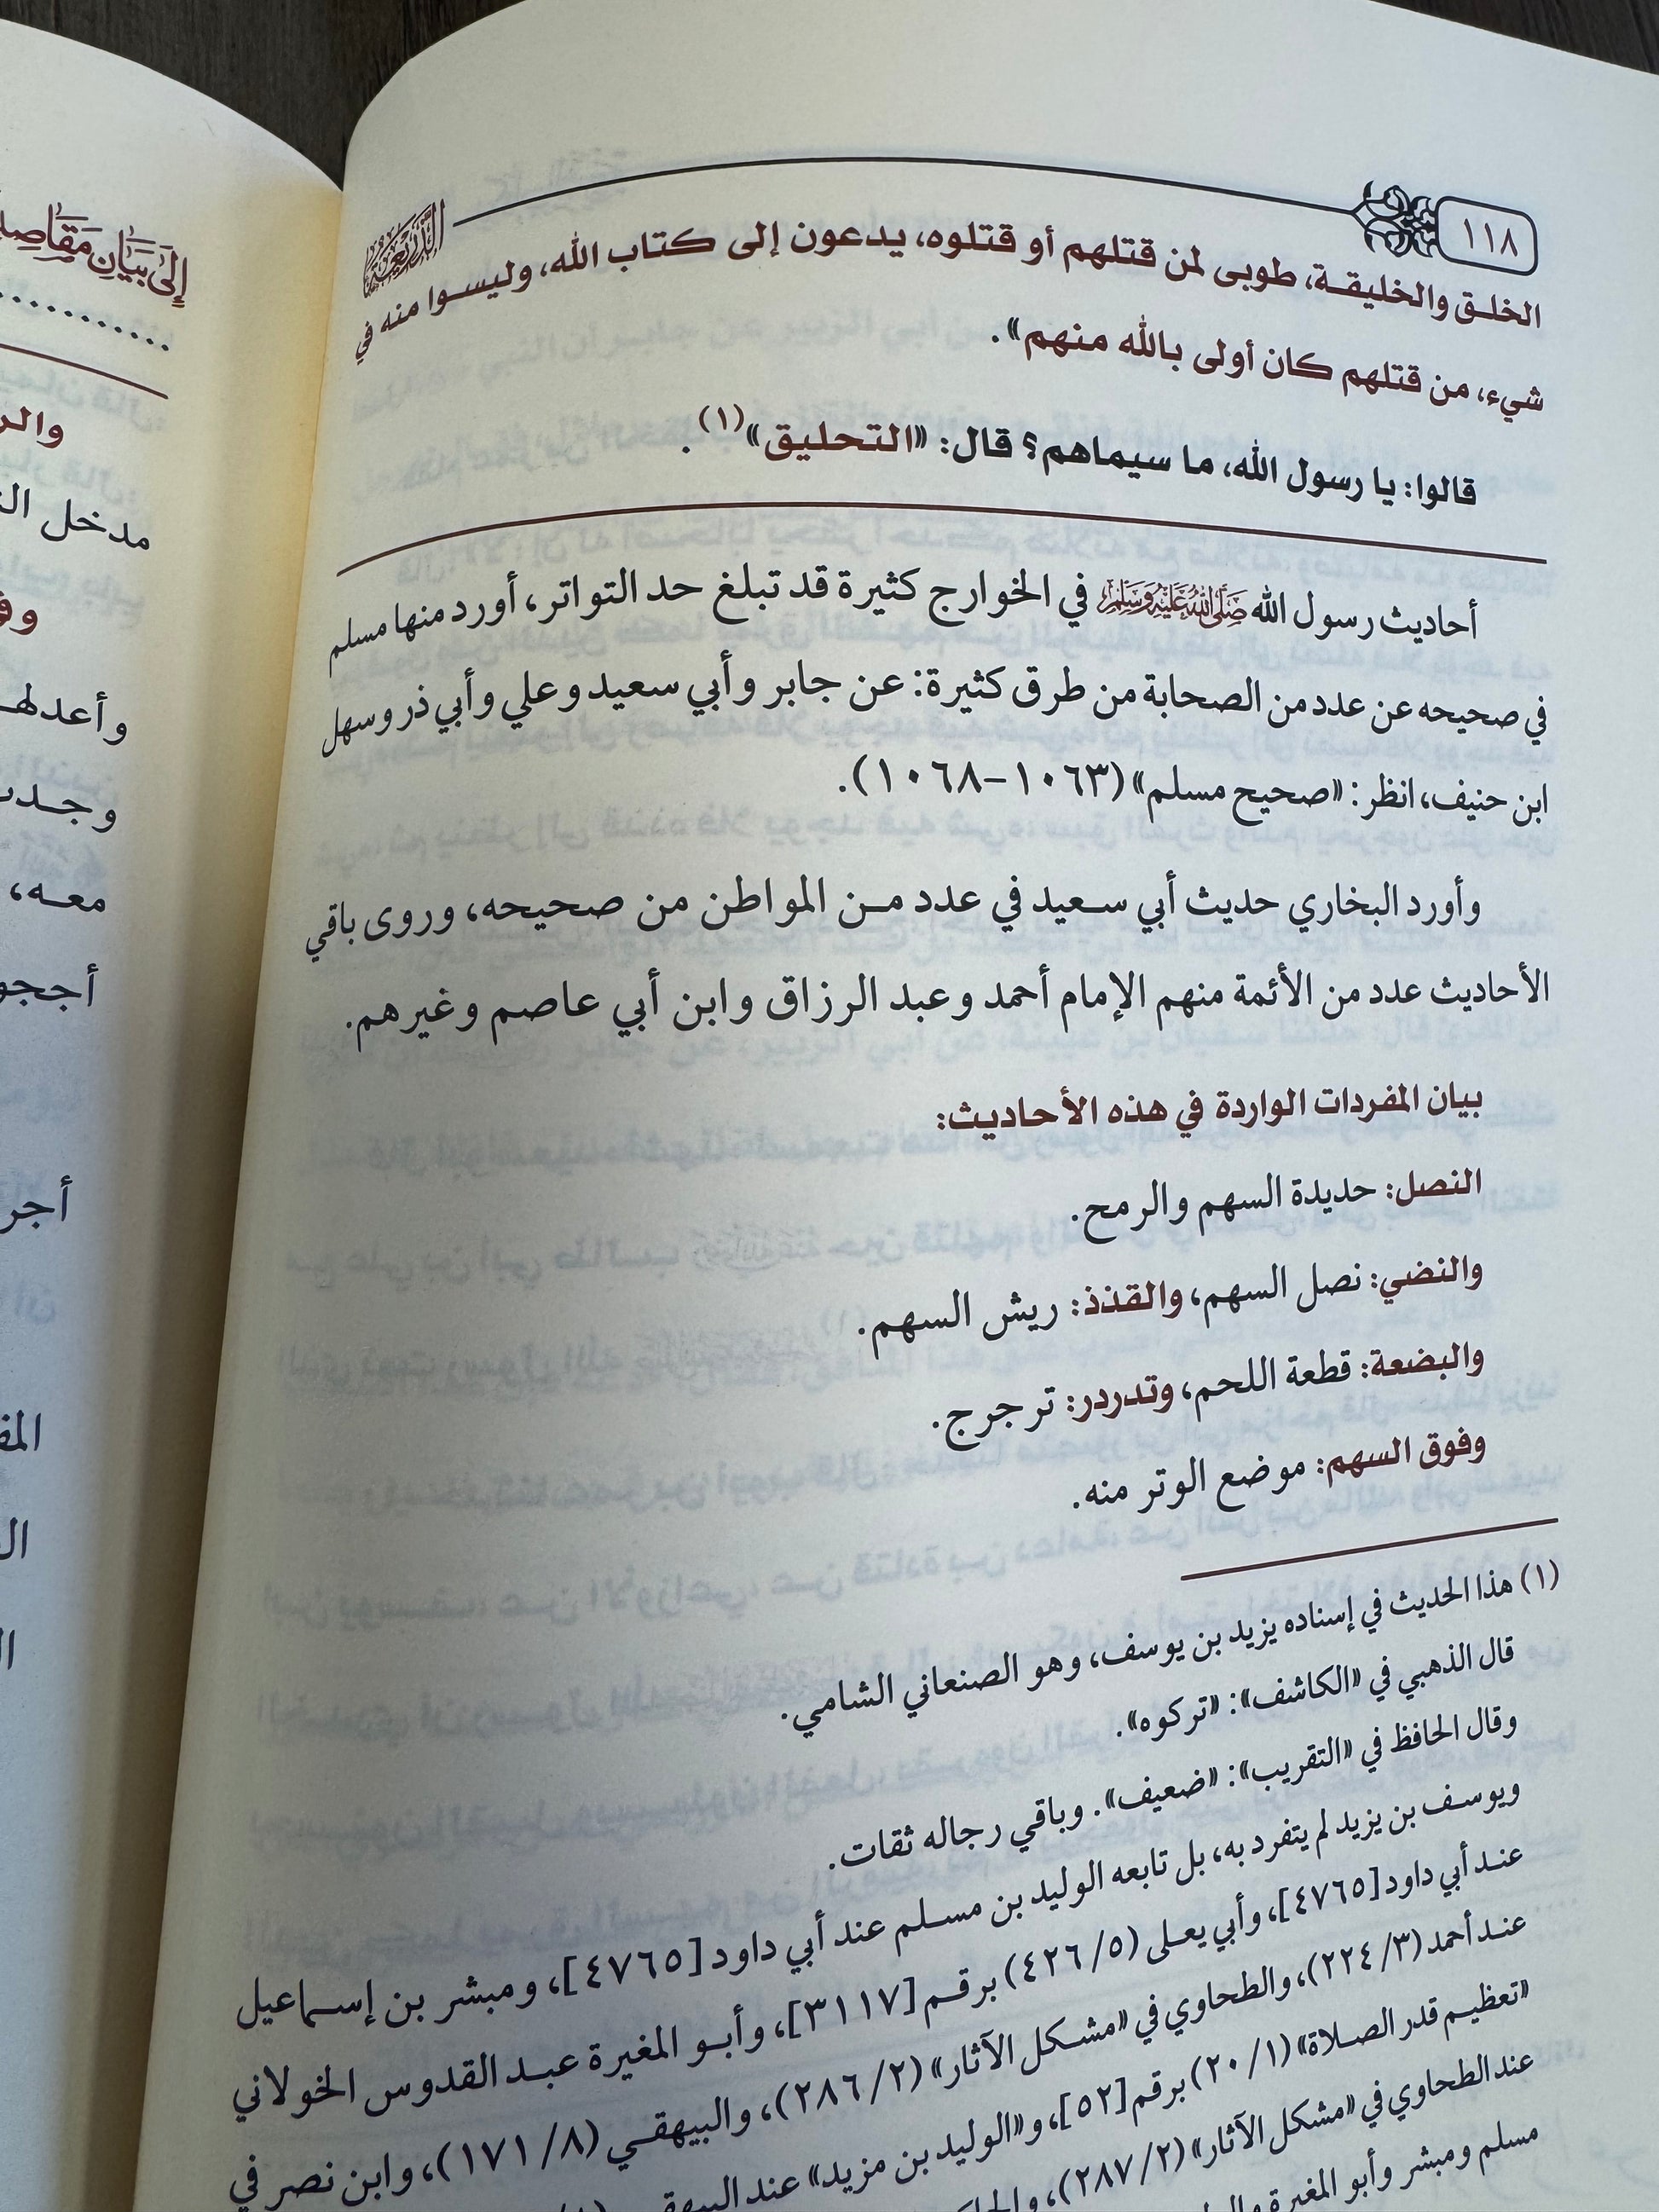 ١١٨
الذريعة
الخلق والخليقة، طوبى لمن قتلهم أو قتلوه، يدعون إلى كتاب الله، وليسوا منه في
شيء، من قتلهم كان أولى بالله منهم».
قالوا: يا رسول الله، ما سيماهم؟ قال: «التحليق»(١).
أحاديث رسول الله ﷺ في الخوارج كثيرة قد تبلغ حد التواتر، أورد منها مسلم
في صحيحه عن عدد من الصحابة من طرق كثيرة: عن جابر وأبي سعيد وعلي وأبي ذر وسهل
ابن حنيف، انظر: «صحيح مسلم» (١٠٦٣-١٠٦٨).
وأورد البخاري حديث أبي سعيد في عدد من المواطن من صحيحه، وروى باقي
الأحاديث عدد من الأئمة منهم الإمام أحمد وعبد الرزاق وابن أبي عاصم وغيرهم.
بيان المفردات الواردة في هذه الأحاديث:
النصل: حديدة السهم والرمح.
والنضي: نصل السهم، والقذذ: ريش السهم.
والبضعة: قطعة اللحم، وتدردر: ترجرج.
وفوق السهم: موضع الوتر منه.
(١) هذا الحديث في إسناده يزيد بن يوسف، وهو الصنعاني الشامي.
قال الذهبي في «الكاشف»: «تركوه».
وقال الحافظ في «التقريب»: «ضعيف». وباقي رجاله ثقات.
ويوسف بن يزيد لم يتفرد به، بل تابعه الوليد بن مسلم عند أبي داود [٤٧٦٥]، ومبشر بن إسماعيل
عند أبي داود [٤٧٦٥]، وأبي يعلى (٥/ ٤٢٦) برقم [٣١١٧]، وأبو المغيرة عبد القدوس الخولاني
عند أحمد (٣/ ٢٢٤)، والطحاوي في «مشكل الآثار» (٢/ ٢٨٦)، والبيهقي (٨/ ١٧١)، وابن نصر في
«تعظيم قدر الصلاة» (١/ ٢٠) برقم [٥٢]، و«الوليد بن مزيد» عند البيهقي
عند الطحاوي في «مشكل الآثار» (٢/ ٢٨٧)،
مسلم ومبشر وأبو المغيرة
إلى بيان
مدخل
معه،